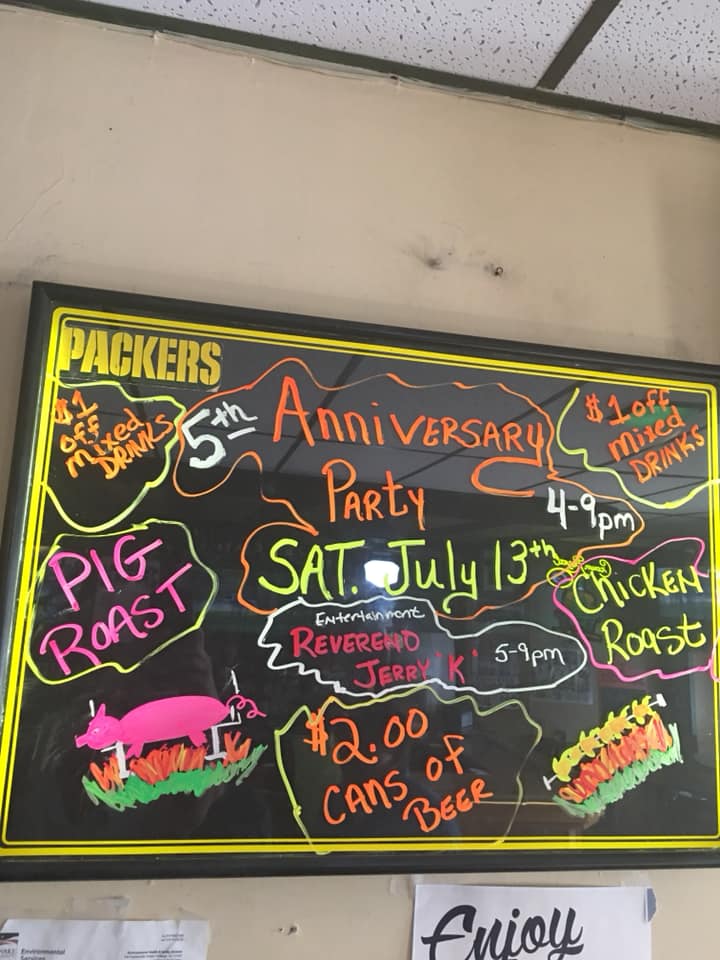 PACKERS
$1
off
mixed
DRINKS
5th
Anniversary
Party
4-9pm
SAT. July 13th
$1 off
mixed
DRINKS
PIG
ROAST
Entertainment
REVEREND
JERRY "K"
5-9pm
CHICKEN
Roast
$2.00
CANS of
BEER
Enjoy
Environmental
Services